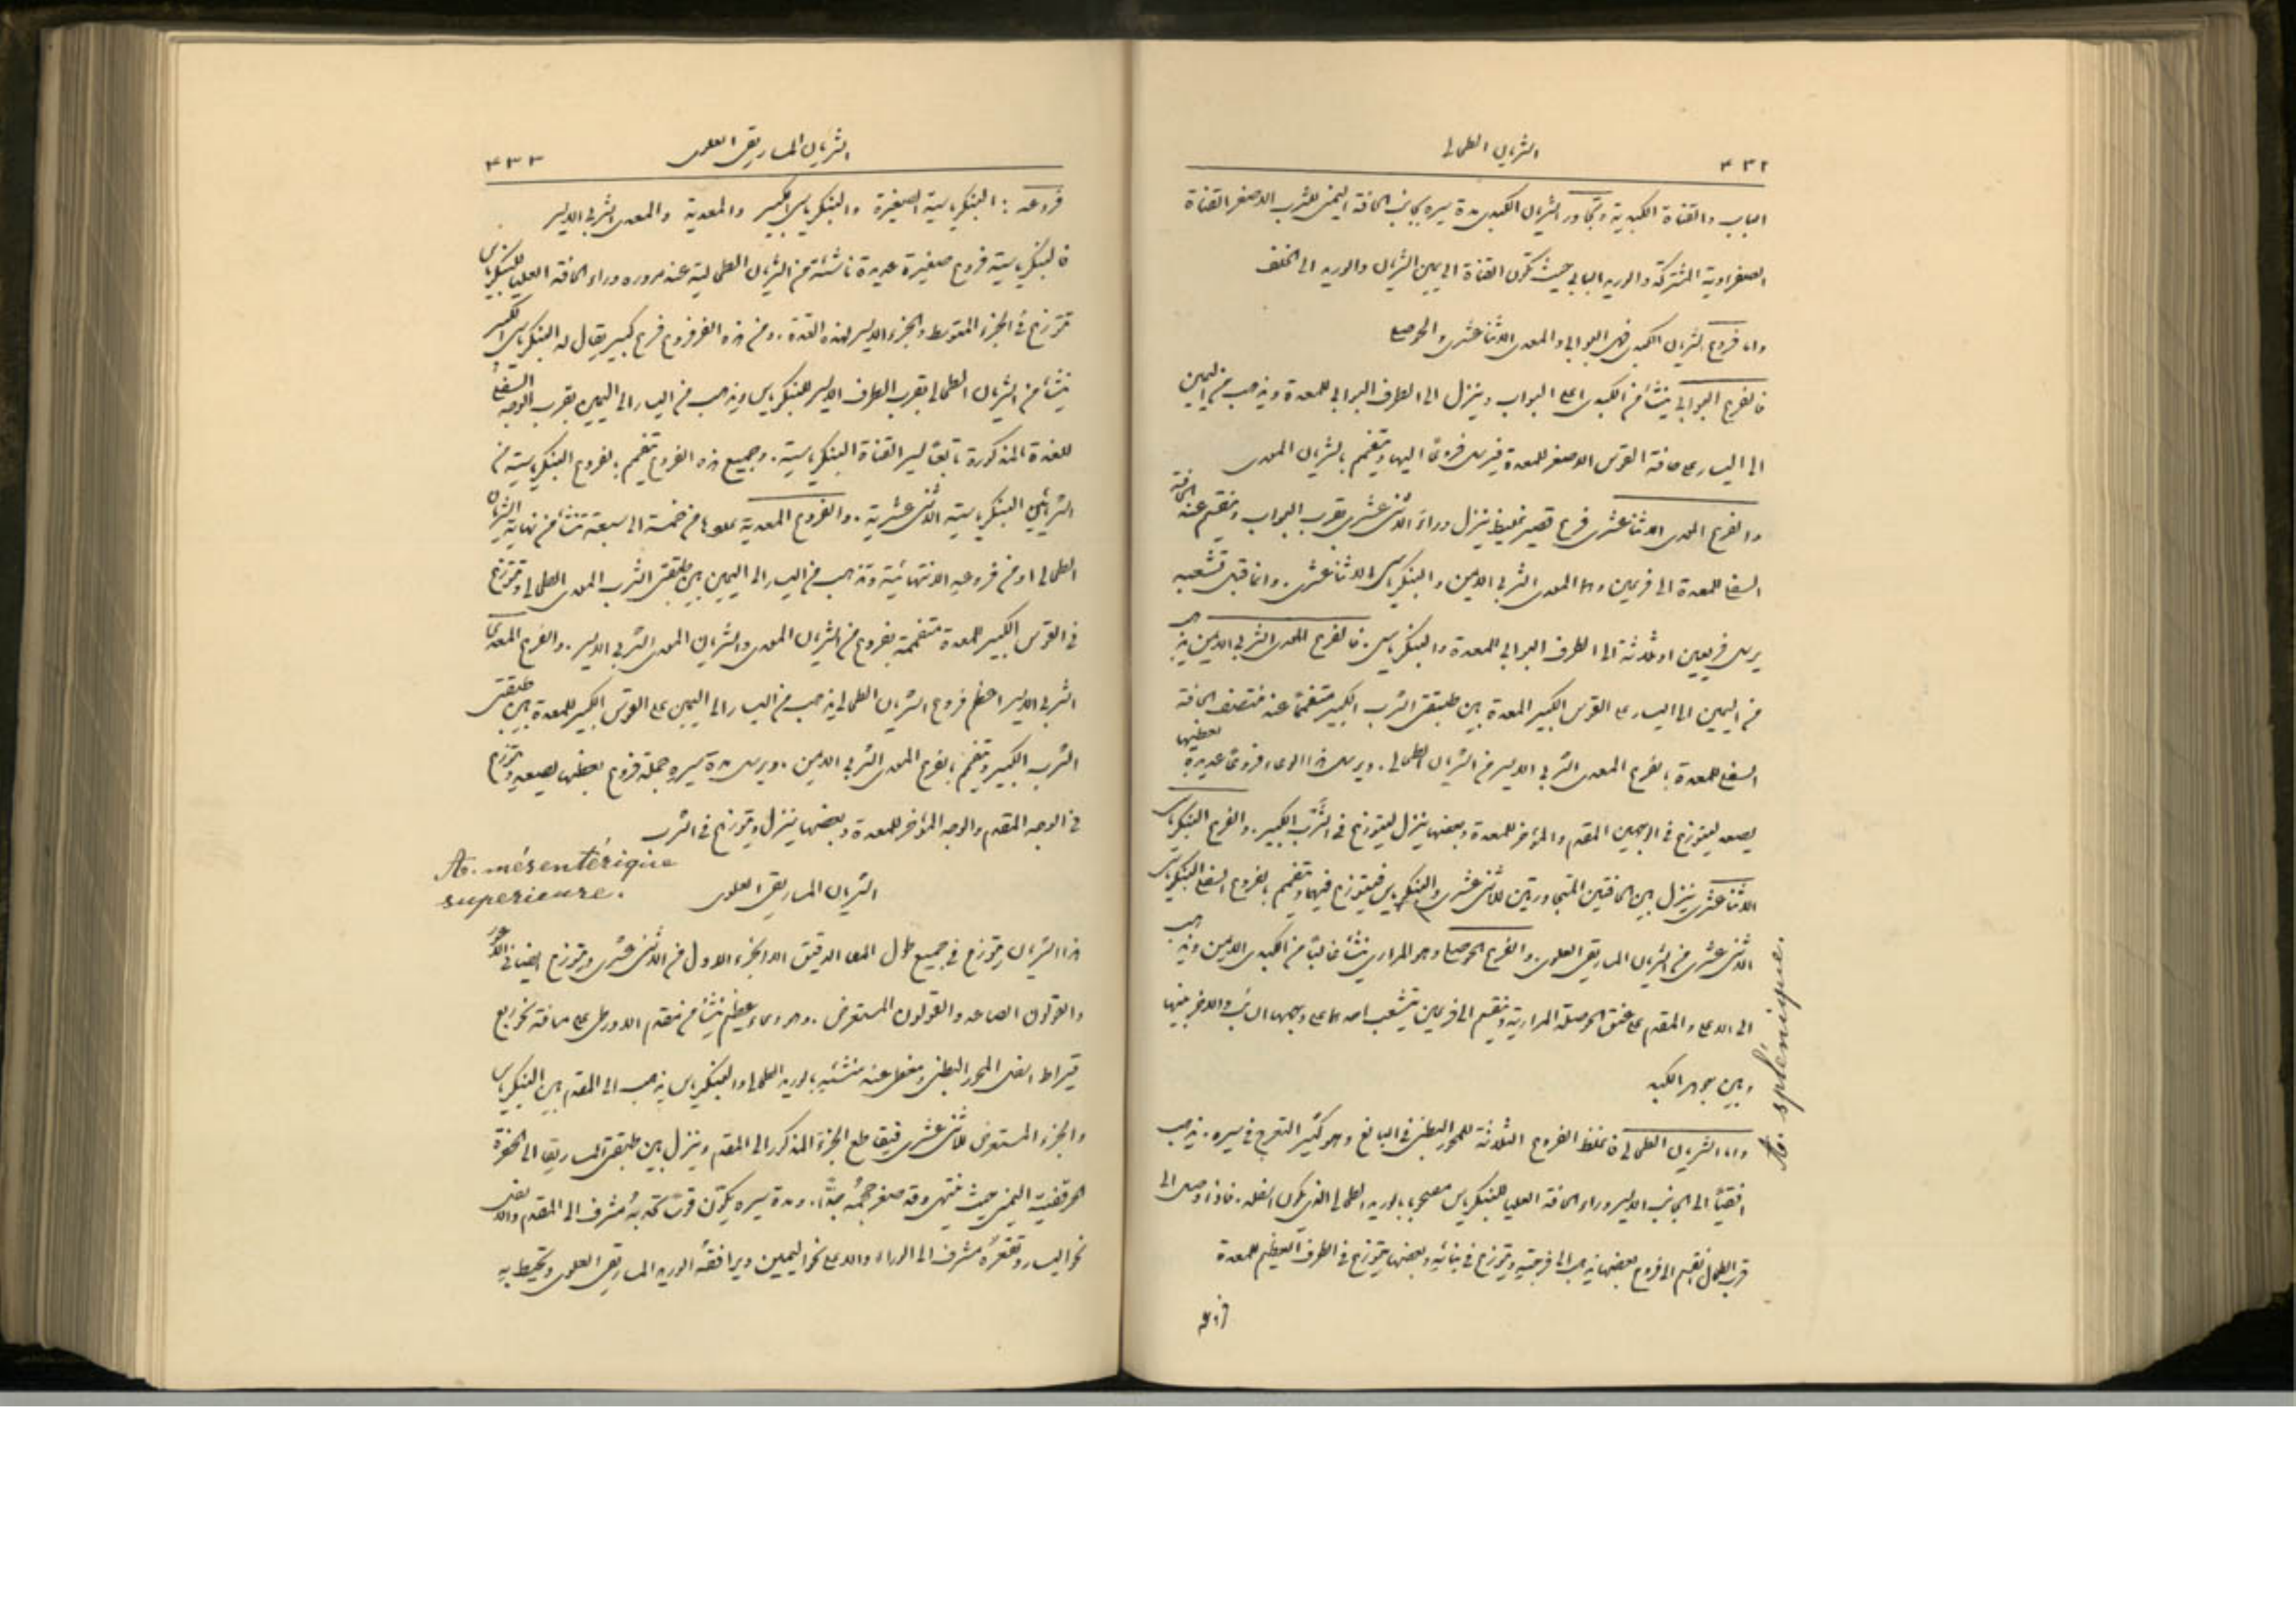 ٤٣٢
الشريان الطحالي
الباب والقناة الكبدية وتجاور الشريان الكبدي مدة سيره بجانب الحافة اليمنى للثرب الاصغر القناة
الصفراوية المشتركة والوريد البابي حيث تكون القناة الى يمين الشريان والوريد الى الخلف
واما فروع الشريان الكبدي فهي البوابي والمعدي الاثناعشري والحوصلي
فالفرع البوابي ينشأ من الكبدي اعلى البواب وينزل الى الطرف البوابي للمعدة ويذهب من اليمين
الى اليسار على حافة القوس الاصغر للمعدة فيرسل فروعًا اليها ويتفمم بالشريان المعدي
والفرع المعدي الاثناعشري فرع قصير غليظ ينزل وراء الاثنى عشري بقرب البواب وينقسم عند الحافة
السفلى للمعدة الى فرعين وهما المعدي الثربي الايمن والبنكرياسي الاثناعشري. وانما قبل تشعبه
يرسل فريعين او ثلاثة الى الطرف البوابي للمعدة والبنكرياس. فالفرع المعدي الثربي الايمن يذهب
من اليمين الى اليسار على القوس الكبير للمعدة بين طبقتي الثرب الكبير متفممًا عند منتصف الحافة
السفلى للمعدة بالفرع المعدي الثربي الايسر من الشريان الطحالي. ويرسل هذا الوعاء فروعًا عديدة بعضها
يصعد ليتوزع في الوجهين المقدم والمؤخر للمعدة وبعضها ينزل ليتوزع في الثرب الكبير. والفرع البنكرياسي
الاثناعشري ينزل بين الحافتين المتجاورتين للاثنى عشري والبنكرياس فيتوزع فيهما ويتفمم بالفروع السفلى البنكرياسية
الاثنى عشري من الشريان الماساريقي العلوي. والفرع الحوصلي وهو المراري ينشأ غالبًا من الكبدي الايمن ويذهب
الى الاعلى والمقدم على عنق الحوصلة المرارية وينقسم الى فرعين يتشعب احدهما على وجهها السائب والاخر بينها
وبين جوهر الكبد
واما الشريان الطحالي فاغلظ الفروع الثلاثة للمحور البطني في البالغ وهو كثير التعرج في سيره. يذهب
افقيًا الى الجانب الايسر وراء الحافة العليا للبنكرياس مصحوبًا بالوريد الطحالي الذي يكون اسفله. فاذا وصل الى
قرب الطحال انقسم الى فروع بعضها يذهب الى فرجته ويتوزع في بنائه وبعضها يتوزع في الطرف العظيم للمعدة
A. splénique.
٤٣٣
الشريان الماساريقي العلوي
فروعه: البنكرياسية الصغيرة والبنكرياسي الكبير والمعدية والمعدي الثربي الايسر
فالبنكرياسية فروع صغيرة عديدة ناشئة من الشريان الطحالي عند مروره وراء الحافة العليا للبنكرياس
تتوزع في الجزء المتوسط والجزء الايسر لهذه الغدة. ومن هذه الفروع فرع كبير يقال له البنكرياسي الكبير
ينشأ من الشريان الطحالي بقرب الطرف الايسر للبنكرياس ويذهب من اليسار الى اليمين بقرب الوجه السفلي
للغدة المذكورة تابعًا لسير القناة البنكرياسية. وجميع هذه الفروع تتفمم بالفروع البنكرياسية من
الشرايين البنكرياسية الاثنى عشرية. والفروع المعدية عددها من خمسة الى سبعة تنشأ من نهاية الشريان
الطحالي او من فروعه الانتهائية وتذهب من اليسار الى اليمين بين طبقتي الثرب المعدي الطحالي وتتوزع
في القوس الكبير للمعدة متفممة بفروع من الشريان المعدي والشريان المعدي الثربي الايسر. والفرع المعدي
الثربي الايسر اعظم فروع الشريان الطحالي يذهب من اليسار الى اليمين على القوس الكبير للمعدة بين طبقتي
الثرب الكبير ويتفمم بالفرع المعدي الثربي الايمن. ويرسل مدة سيره جملة فروع بعضها يصعد ويتوزع
في الوجه المقدم والوجه المؤخر للمعدة وبعضها ينزل ويتوزع في الثرب
A. mésentérique
superieure.
الشريان الماساريقي العلوي
هذا الشريان يتوزع في جميع طول المعا الدقيق الا الجزء الاول من الاثنى عشري ويتوزع ايضا في الاعور
والقولون الصاعد والقولون المستعرض. وهو وعاء عظيم ينشأ من مقدم الاورطى على مسافة نحو ربع
قيراط اسفل المحور البطني ومغطى عند منشئه بالوريد الطحالي والبنكرياس يذهب الى المقدم بين البنكرياس
والجزء المستعرض للاثنى عشري فيقاطع الجزء المذكور الى المقدم وينزل بين طبقتي الماساريقا الى الحفرة
الحرقفية اليمنى حيث ينتهي وقد صغر حجمه جدًا. ومدة سيره يكون قوسًا تحدبه مشرف الى المقدم والاسفل
نحو اليسار وتقعره مشرف الى الوراء والاعلى نحو اليمين ويرافقه الوريد الماساريقي العلوي وتحيط به